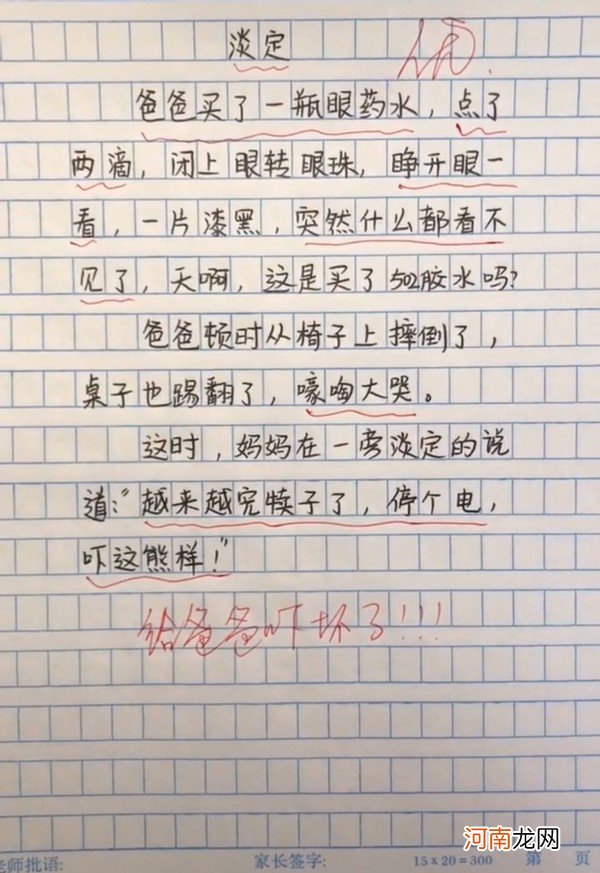 淡定
优
爸爸买了一瓶眼药水，点了
两滴，闭上眼转眼珠，睁开眼一
看，一片漆黑，突然什么都看不
见了，天啊，这是买了502胶水吗？
爸爸顿时从椅子上摔倒了，
桌子也踢翻了，嚎啕大哭。
这时，妈妈在一旁淡定的说
道：“越来越完犊子了，停个电，
吓这熊样！”
给爸爸吓坏了!!!
河南龙网
老师批语: 家长签字: 15×20=300 第 页